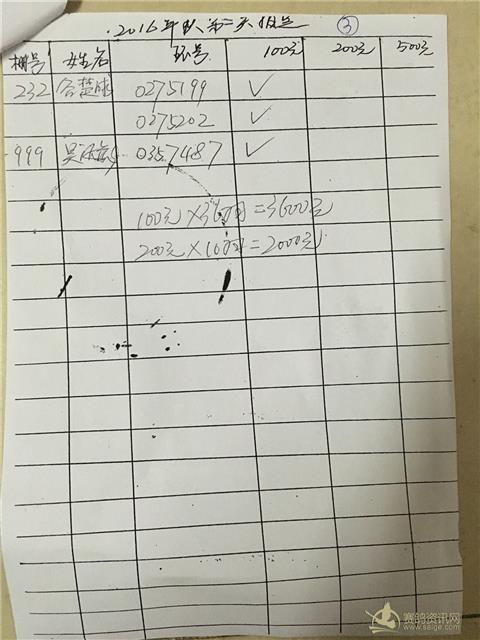 2016年队第二关指定 ③
棚号 姓名 环号 100元 200元 500元
232 0275199 ✓
0275202 ✓
999 吴 0357487 ✓
100元×36羽=3600元
200元×10羽=2000元
赛鸽资讯网
www.saige.com